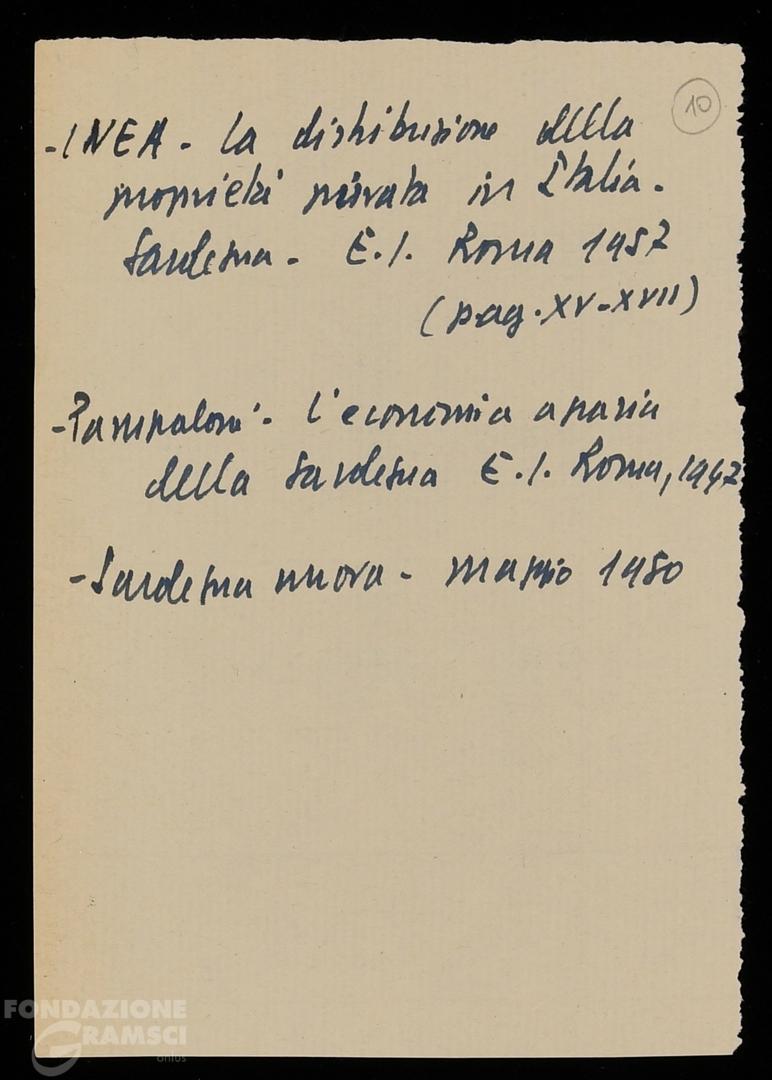 10
- INEA - La distribuzione della
proprietà privata in Italia -
Sardegna - E.I. Roma 1957
(pag. XV-XVII)
- Pampaloni - L'economia agraria
della Sardegna E.I. Roma, 1947
- Sardegna nuova - maggio 1950
FONDAZIONE
GRAMSCI
onlus